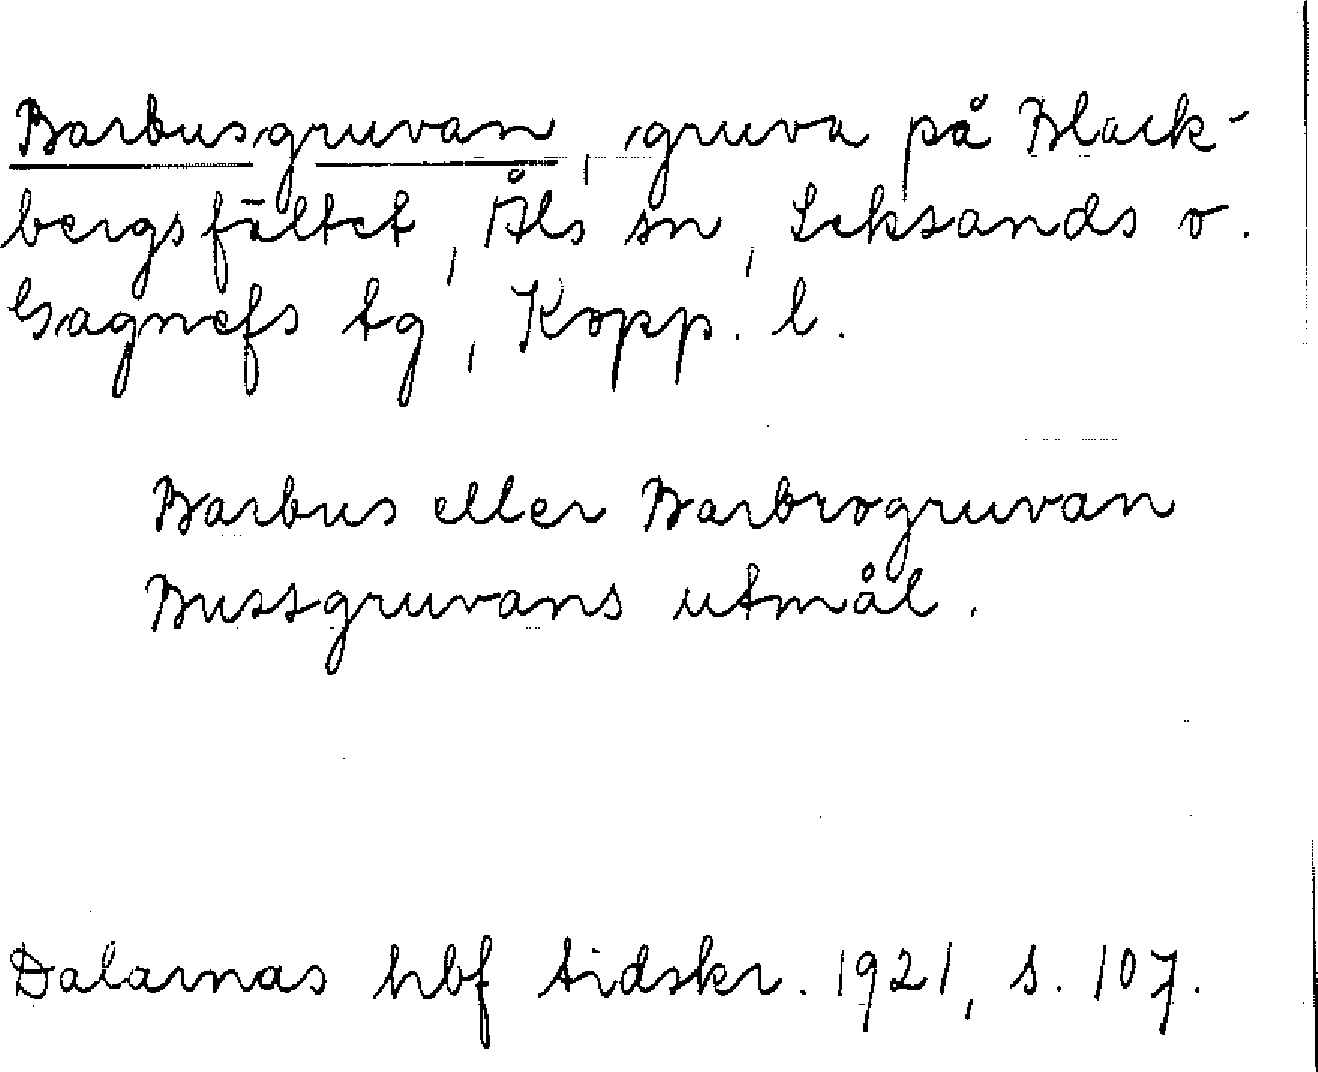 Barbusgruvan, gruva på Black-
bergsfältet, Åls sn, Leksands o.
Gagnefs tg, Kopp. l.
Barbus eller Barbrogruvan
Bussgruvans utmål.
Dalarnas hbf tidskr. 1921, s. 107.